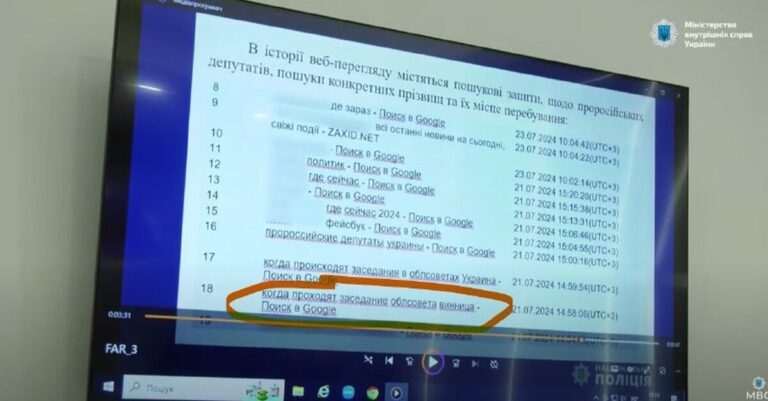 Медіапрогравач
Міністерство
внутрішніх справ
України
В історії веб-перегляду містяться пошукові запити, щодо проросійських
депутатів, пошуки конкретних прізвищ та їх місце перебування:
8
9 де зараз - Поиск в Google 23.07.2024 10:04:42(UTC+3)
всі останні новини на сьогодні,
10 свіжі події - ZAXID.NET 23.07.2024 10:04:22(UTC+3)
11 - Поиск в Google 23.07.2024 10:02:14(UTC+3)
12 политик - Поиск в Google 21.07.2024 15:20:20(UTC+3)
13 где сейчас - Поиск в Google 21.07.2024 15:15:38(UTC+3)
14 - Поиск в Google 21.07.2024 15:13:31(UTC+3)
15 где сейчас 2024 - Поиск в Google 21.07.2024 15:06:46(UTC+3)
16 фейсбук - Поиск в Google 21.07.2024 15:04:55(UTC+3)
пророссийские депутаты украины - Поиск в Google 21.07.2024 15:00:16(UTC+3)
17 когда происходят заседания в облсоветах Украина -
Поиск в Google 21.07.2024 14:59:54(UTC+3)
18 когда проходят заседание облсовета винница -
Поиск в Google 21.07.2024 14:58:06(UTC+3)
19
0:03:31
FAR_3
ПОЛІЦІЯ
Пошук
МВС